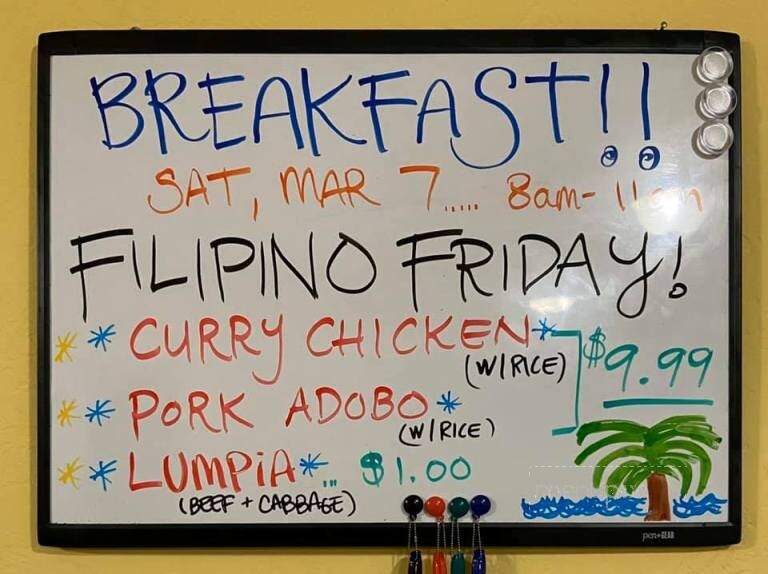 BREAKFAST!!
SAT, MAR 7..... 8am-11am
FILIPINO FRIDAY!
** CURRY CHICKEN*
(W/RICE)
$9.99
** PORK ADOBO*
(W/RICE)
** LUMPIA*... $1.00
(BEEF + CABBAGE)
pen+GEAR